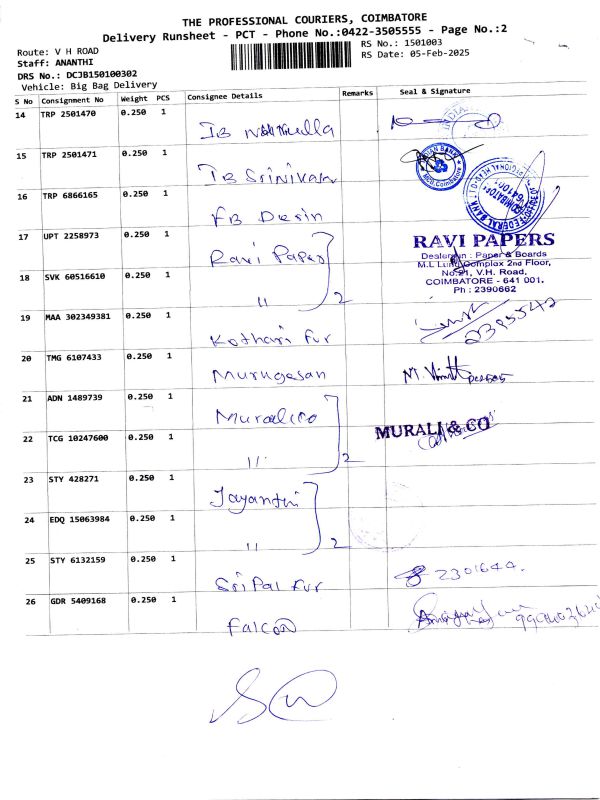 THE PROFESSIONAL COURIERS, COIMBATORE
Delivery Runsheet - PCT - Phone No.:0422-3505555 - Page No.:2
Route: V H ROAD
RS No.: 1501003
Staff: ANANTHI
RS Date: 05-Feb-2025
DRS No.: DCJB150100302
Vehicle: Big Bag Delivery
S No Consignment No Weight PCS Consignee Details Remarks Seal & Signature
14 TRP 2501470 0.250 1
IB
15 TRP 2501471 0.250 1
IB Srinivasan
16 TRP 6866165 0.250 1
FB
17 UPT 2258973 0.250 1
Ravi Paper
RAVI PAPERS
Dealers in : Paper & Boards
M.L Lund Complex 2nd Floor,
No:21, V.H. Road,
COIMBATORE - 641 001.
Ph : 2390662
18 SVK 60516610 0.250 1
" 2
19 MAA 302349381 0.250 1
Kothari Fur
20 TMG 6107433 0.250 1
Murugesan
21 ADN 1489739 0.250 1
Murali Co
MURALI & CO
22 TCG 10247600 0.250 1
" 2
23 STY 428271 0.250 1
Jayanthi
24 EDQ 15063984 0.250 1
" 2
25 STY 6132159 0.250 1
Sri Pal Fur 2301644.
26 GDR 5409168 0.250 1
Falcon